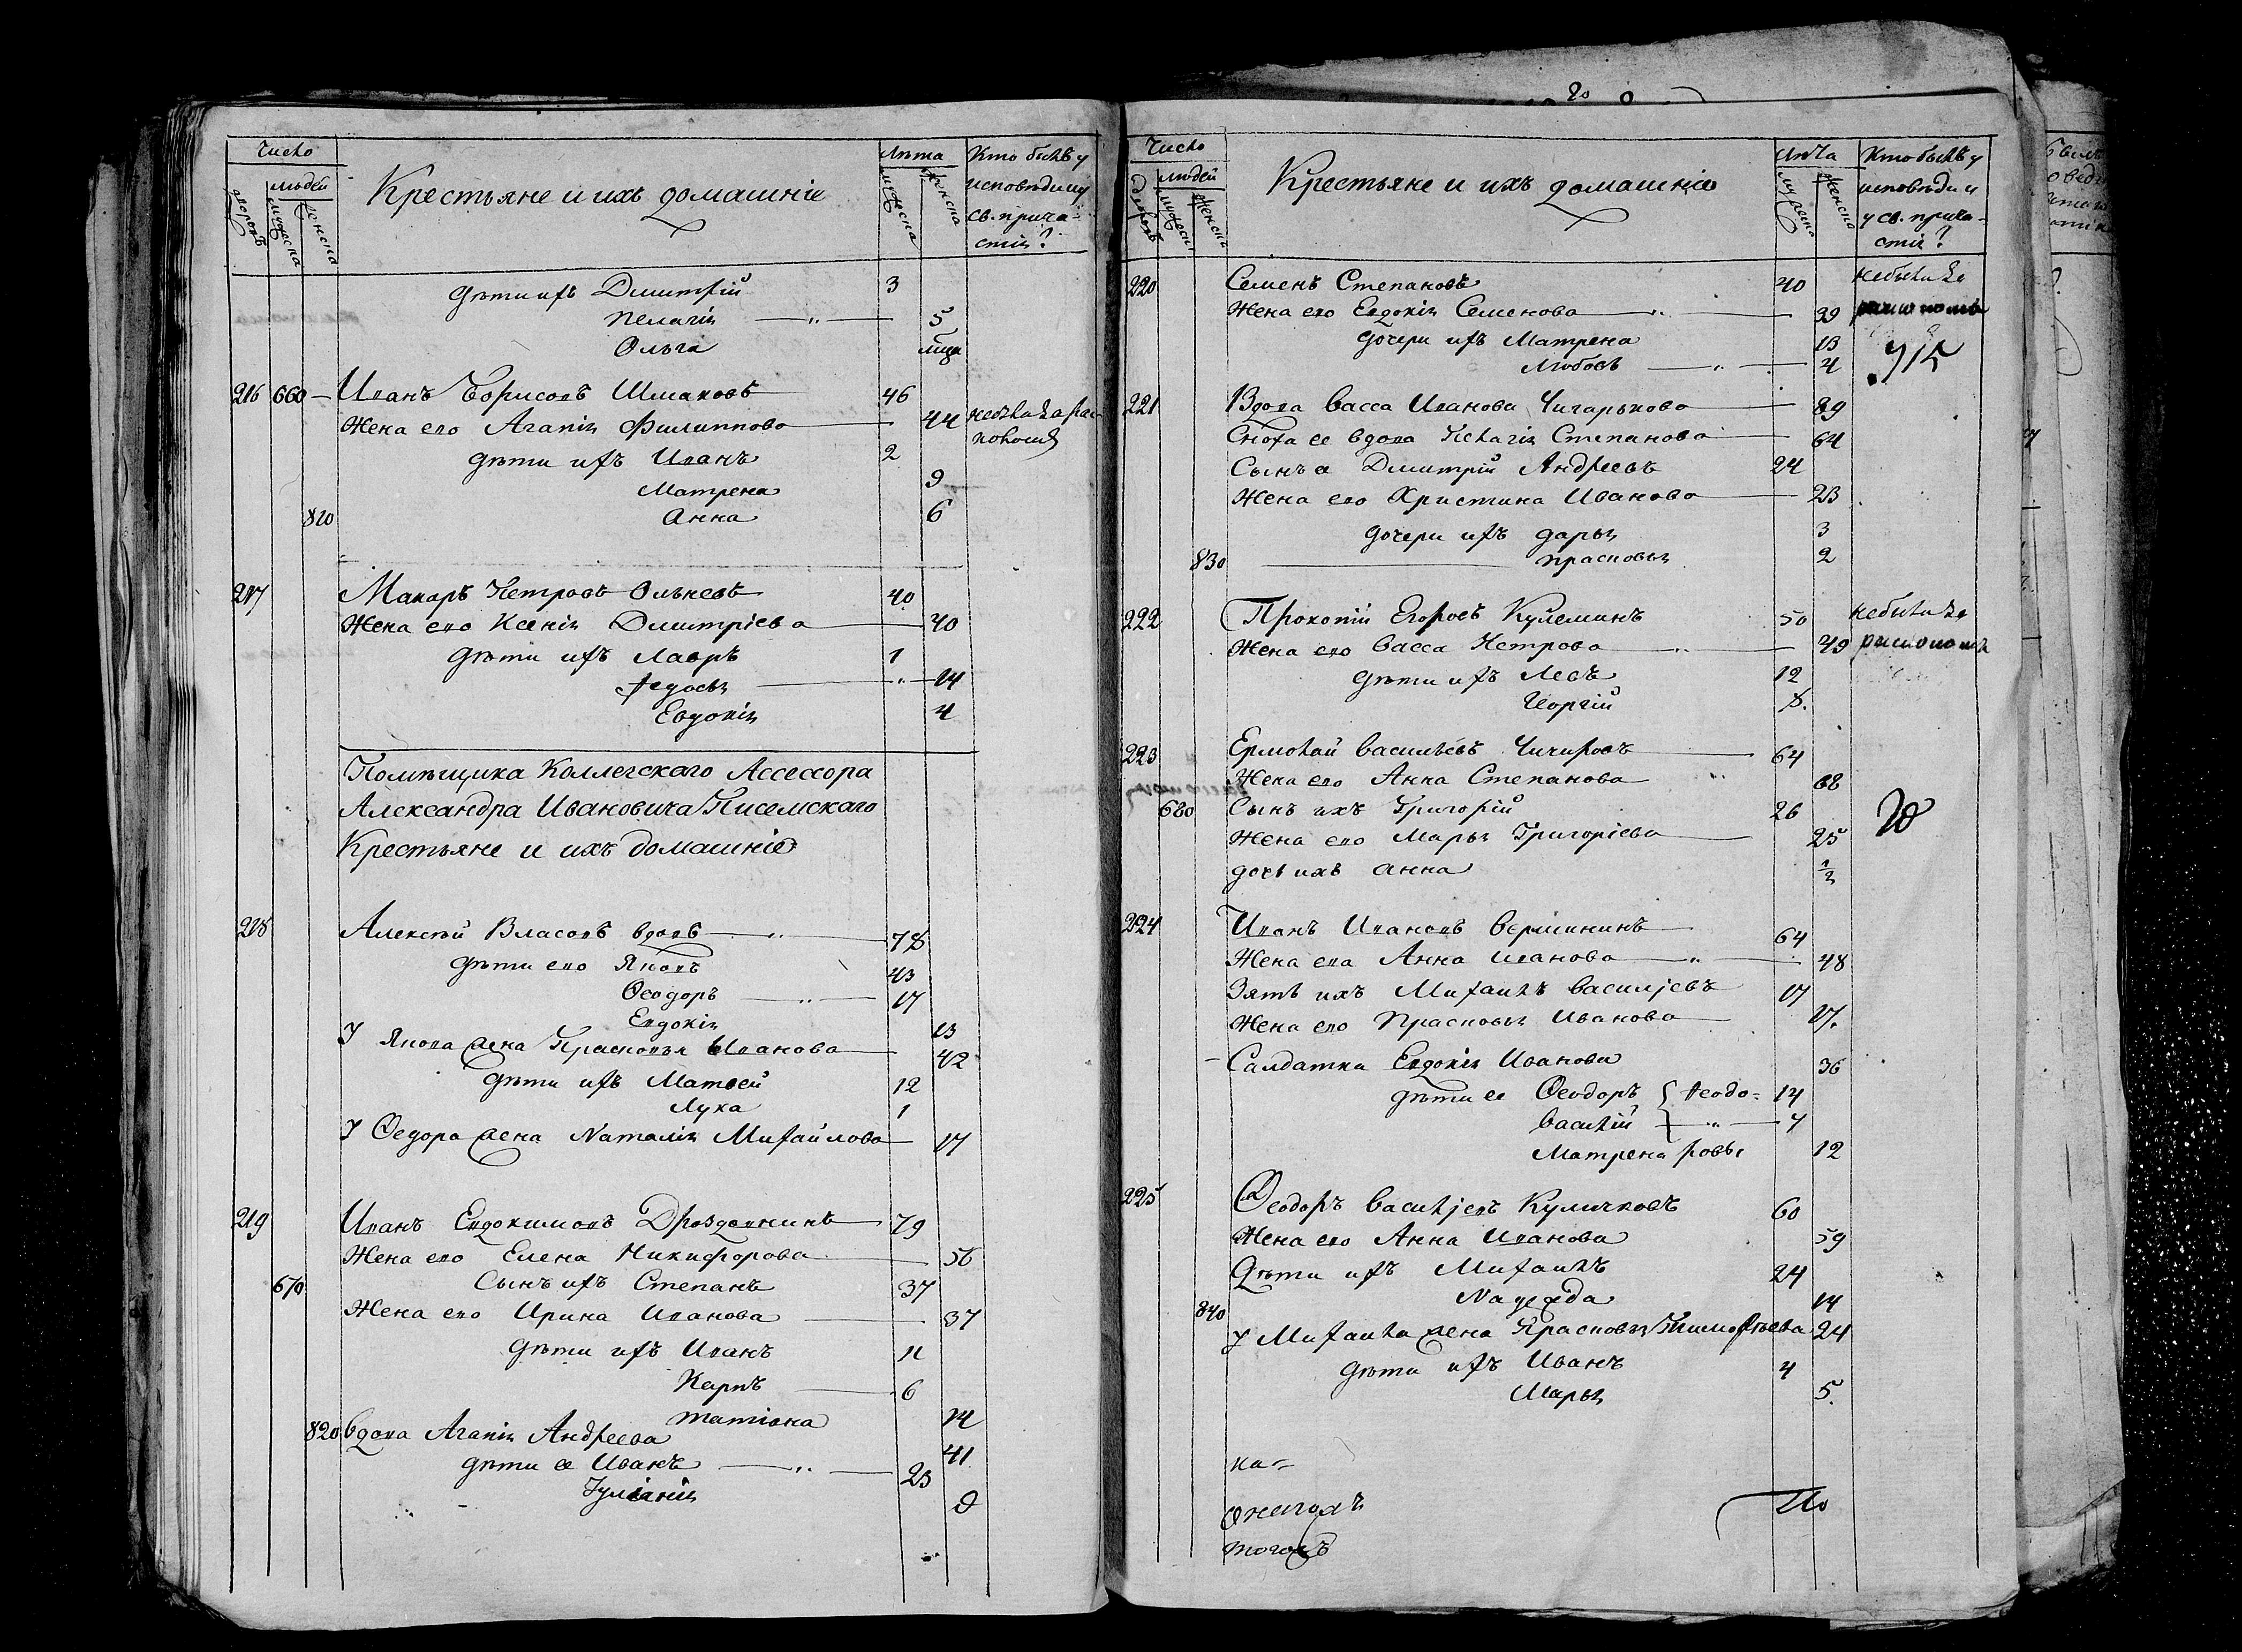 Число
Лѣта
Кто былъ у
людей
Крестьяне и ихъ домашніе
исповѣди и у
дворовъ
мужеска
женска
мужеска
женска
св. прича-
стія?
Дѣти ихъ Димитрій 3
Пелагія —„— 5
Ольга
216 660 — Иванъ Борисовъ Шмаковъ 46
Жена его Агапія Филиппова 44
дѣти ихъ Иванъ 2
Матрена 9
820 Анна 6
217 Макаръ Петровъ 40
Жена его Ксенія Димитріева 40
Дѣти ихъ Лавръ 1
Ѳедосья —„— 14
Евдокія 4
Помѣщика Коллегскаго Ассессора
Александра Ивановича Писемскаго
Крестьяне и ихъ домашніе
218 Алексѣй Власовъ вдовъ —„— 78
Дѣти его Яковъ 43
Ѳеодоръ —„— 17
Евдокія 13
У Якова жена Прасковья Иванова 42
Дѣти ихъ Матвей 12
Лука 1
У Ѳедора жена Наталія Михайлова 17
219 Иванъ Евдокимовъ 79
Жена его Елена Никифорова 56
670 Сынъ ихъ Степанъ 37
Жена его Ирина Иванова 37
Дѣти ихъ Иванъ 11
Карпъ 6
Татіана 14
820 вдова Агапія Андреева 41
дѣти ея Иванъ —„— 23
Іуліанія 9
Число
Лѣта
Кто былъ у
людей
Крестьяне и ихъ домашніе
исповѣди и
у св. прича-
стія?
220 Семенъ Степановъ 40 небыли за
Жена его Евдокія Семенова —„— 39
дочери ихъ Матрена 13
Любовь —„— 4
221 Вдова Васса Иванова 89
Сноха ее вдова Пелагія Степанова 64
Сынъ ея Димитрій Андреевъ 24
Жена его Христина Иванова 23
дочери ихъ Дарья 3
830 Прасковья 2
222 Прокопій Егоровъ Кулеминъ 50 небыли за
Жена его Васса Петрова —„— 49
Дѣти ихъ Левъ 12
Георгій 8.
223 Ермолай Васильевъ Чичировъ 64
Жена его Анна Степанова „ 68
680 Сынъ ихъ Григорій 26
Жена его Марья Григоріева 25
дочь ихъ Анна ½
224 Иванъ Ивановъ Вершининъ 64
Жена его Анна Иванова —„— 48
Зять ихъ Михаилъ Васильевъ 17
Жена его Прасковья Иванова 17.
— Салдатка Евдокія Иванова 36
дѣти ее Ѳеодоръ { Ѳеодо= 14
Василій —„— 7
Матрена ровы 12
225 Ѳеодоръ Васильевъ Куличковъ 60
Жена его Анна Иванова 59
Дѣти ихъ Михаилъ 24
Надежда 14
840 У Михаила жена Прасковья Тимофѣева 24
дѣти ихъ Иванъ 4
Марья 5.
ка=